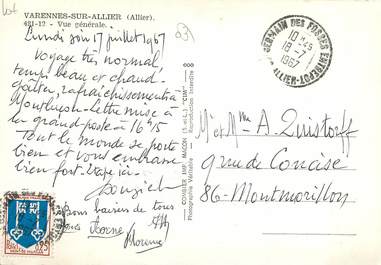 Lot
VARENNES-SUR-ALLIER (Allier).
421-12 - Vue générale.
Lundi soir 17 juillet 1967
Voyage très normal,
temps beau et chaud -
goûter, rafraîchissements à
Montluçon - Lettre mise à
la grand-poste à 16h15
Tout le monde se porte
bien et vous embrasse
bien fort
bons baisers de tous
Florence
COMBIER IMP. MACON (S.-et-L.) "CIM"
Photographie Véritable - Reproduction Interdite
ST GERMAIN DES FOSSES ENTREPOT
10 H 45
18 - 7
1967
ALLIER
Mr et Mme A. Quistorff
9 rue de Concise
86 - Montmorillon